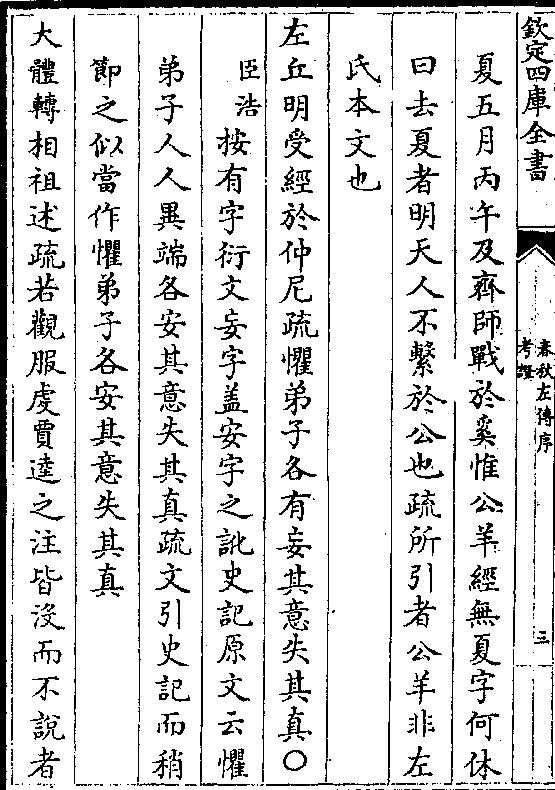 欽定四庫全書
春秋左傳序
考證
三
夏五月丙午及齊師戰於奚惟公羊經無夏字何休
曰去夏者明天人不繫於公也疏所引者公羊非左
氏本文也
左丘明受經於仲尼疏懼弟子各有妄其意失其真○
臣浩按有字衍文妄字盖安字之訛史記原文云懼
弟子人人異端各安其意失其真疏文引史記而稍
節之似當作懼弟子各安其意失其真
大體轉相祖述疏若觀服虔賈逵之注皆沒而不說者